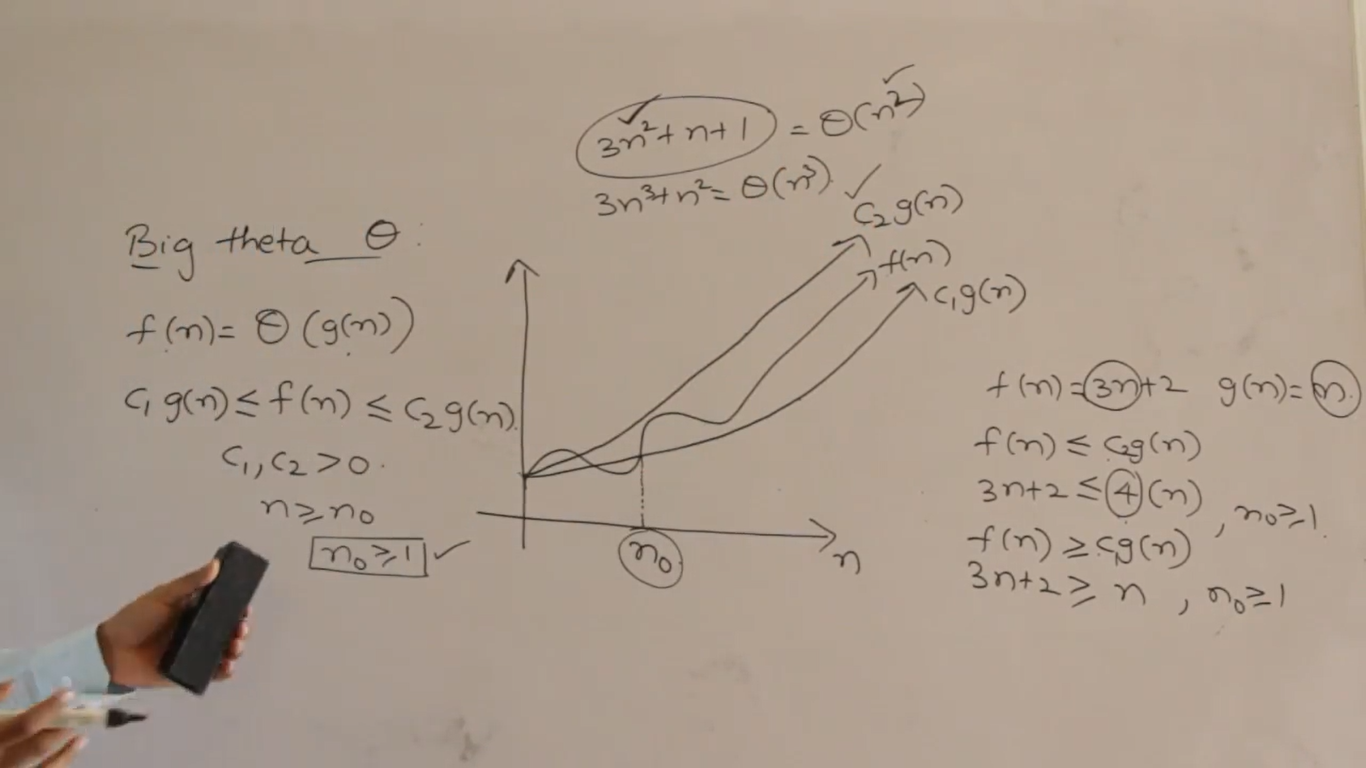 3n²+n+1 = Θ(n²)
3n³+n² = Θ(n³)
Big theta Θ:
f(n) = Θ(g(n))
c₁g(n) ≤ f(n) ≤ c₂g(n).
c₁, c₂ > 0.
n ≥ n₀
n₀ ≥ 1
c₂g(n)
f(n)
c₁g(n)
n₀
n
f(n) = 3n+2 g(n) = n.
f(n) ≤ c₂g(n)
3n+2 ≤ 4(n), n₀ ≥ 1
f(n) ≥ c₁g(n)
3n+2 ≥ n, n₀ ≥ 1